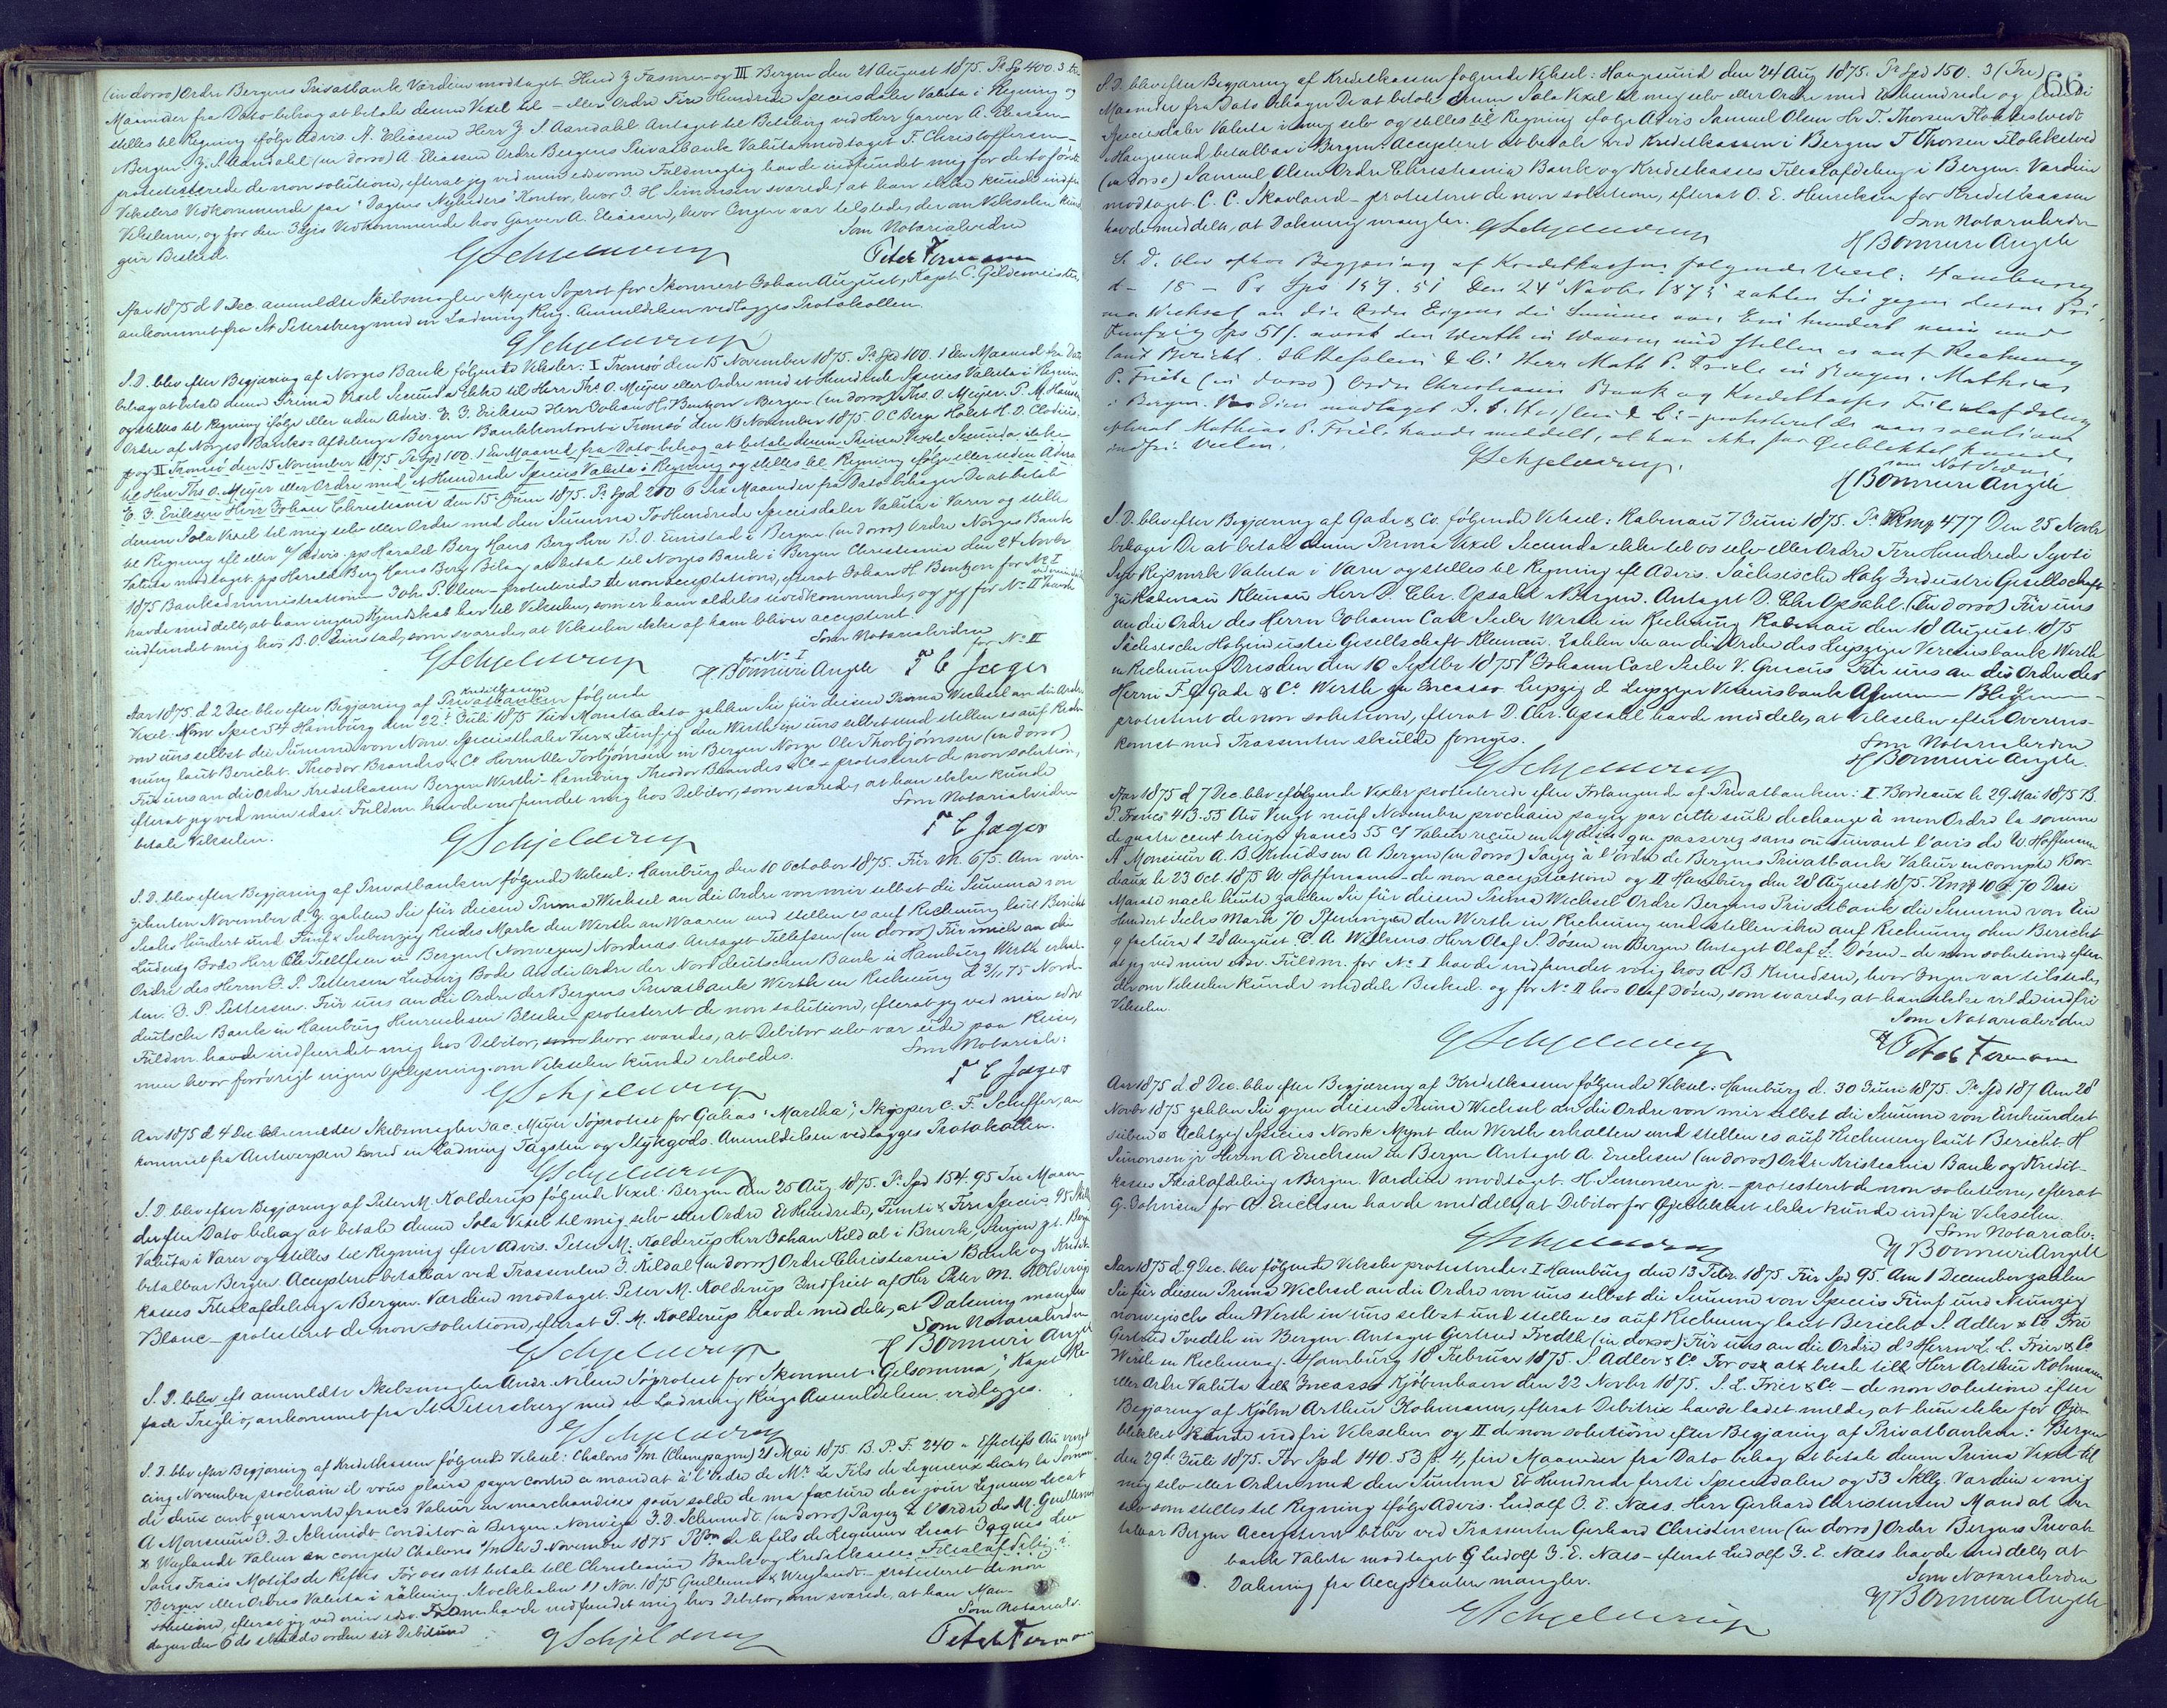 (in dorso) Ordre Bergens Privatbank Værdien modtaget Hend. J Fasmer og III Bergen den 21 August 1875. Pr Sp 400. 3 tre
Maaneder fra Dato behag at betale denne Vexel til eller Ordre Fire Hundrede Speciesdaler Valuta i Regning og
stilles til Regning ifølge Advis. A. Eliassen Herr J. S. Aandahl. Antaget til Betaling ved Herr Garver A. Eliassen
Bergen J. S. Aandahl (in dorso) A. Eliassen Ordre Bergens Privatbank Valuta modtaget F. Christoffersen
protesterede de non solutione, efterat jeg ved min edsvorne Fuldmægtig havde indfundet mig for de to første
Vekslers Vedkommende paa "Dagens Nyheders" Kontor, hvor J. H. Simonsen svarede, at han ikke kunde indfri
Vekslerne, og for den 3dies Vedkommende hos Garver A. Eliassen, hvor Ingen var tilstede, der om Vekselen kunde
give Besked.
Som Notarialvidne
GSchjelderup
Peter Fermann
Aar 1875 d 1 Dec. anmeldte Skibsmægler Meyer Søprot. for Skonnert Johan August, Kapt. C. Geldemeister,
ankommet fra St Petersberg med en Ladning Rug. Anmeldelsen vedlægges Protokollen.
GSchjelderup
S. D. blev efter Begjæring af Norges Bank følgende Veksler: I Tromsø den 15 November 1875. Pr Spd 100. 1 Een Maaned fra Dato
behag at betale denne Prima Vexel Secunda ikke til Herr Ths O. Meyer eller Ordre med et Hundrede Species Valuta i Regning
og stilles til Regning ifølge eller uden Advis. E. J. Eriksen Herr Johan H. Bentzon Bergen (in dorso) Ths. O. Meyer. P. M. Hansen
Ordre af Norges Banks Afdeling i Bergen Bankkontoret i Tromsø den 16 November 1875 O C Berg Halst H. D. Clodius.
og II Tromsø den 15 November 1875 Pr Spd 100. 1 Een Maaned fra Dato behag at betale denne Prima Vexel Secunda ikke
til Herr Ths O. Meyer eller Ordre med et Hundrede Species Valuta i Regning og stilles til Regning ifølge eller uden Advis
E. J. Eriksen Herr Johan Christiania den 15 Juni 1875. Pr Spd 200 6 Sex Maaneder fra Dato behager De at betale
denne Sola Vexel til mig selv eller Ordre med den Summa To Hundrede Speciesdaler Valuta i Varer og stille
til Regning ifl eller u/Advis. pp Harald Berg Hans Berg Herr B. O. Enistad i Bergen (in dorso) Ordre Norges Bank
Valuta modtaget pp Harald Berg Hans Berg Belag at betale til Norges Bank i Bergen Christiania den 24 Novbr
1875 Bankadministration Joh. P. Olsen – protesterede de non acceptatione, efterat Johan H Bentzon for No I
havde meddelt, at han ingen Kjendskab har til Vekselen, som er ham aldeles uvedkommende, og jeg for No II havde
indfundet mig hos B. O. Enistad, som svarede, at Vekselen ikke af ham bliver accepteret.
Som Notarialvidne
for No I for No II
GSchjelderup H Bonnevie Angell F C Jæger
Aar 1875. d. 2 Dec. blev efter Begjæring af Privatbanken Kreditkassen følgende
Vexel: Norv Spec 54 Hamburg den 22t Juli 1875 Vier Monate dato zahlen Sie für diesen Prima Wechsel an die Ordre
von uns selbst die Summe von Norv. Speciesthaler Vier & Fünfzig den Werth in uns selbst und stellen es auf Rech-
nung laut Bericht. Theodor Brandes & Co Herrn Ole Torbjørnsen in Bergen Norge Ole Thorbjørnsen (in dorso)
Für uns an die Ordre Kreditkassen Bergen Werth – Hamburg Theodor Brandes & Co – protesteret de non solutione,
efterat jeg ved min edsv. Fuldm. havde indfundet mig hos Debitor, som svarede, at han ikke kunde
betale Vekselen.
Som Notarialvidne
GSchjelderup
F C Jæger
S. D. blev efter Begjæring af Privatbanken følgende Veksel: Hamburg den 10 October 1875. Für M. 675. Am vier-
zehnten November d. J. zahlen Sie für diesen Prima Wechsel an die Ordre von mir selbst die Summa von
Sechs hundert und Fünf & Siebenzig Reichs Mark den Werth in Waaren und stellen es auf Rechnung laut Bericht
Ludwig Bode Herr Ole Tellefsen in Bergen (Norwegen) Nordnæs. Antaget Tellefsen (in dorso) Für mich an die
Ordre des Herrn J. P. Pettersen Ludwig Bode An die Ordre der Norddeutschen Bank in Hamburg Werth erhal-
ten. J. P. Pettersen. Für uns an die Ordre der Bergens Privatbank Werth in Rechnung d 3/11 75 Nord-
deutsche Bank in Hamburg Hinrichsen Bleske – protesteret de non solutione, efterat jeg ved min edsv
Fuldm. havde indfundet mig hos Debitor, hvor svaredes, at Debitor selv var ude paa Reise,
men hvor forøvrigt ingen Oplysning om Vekselen kunde erholdes.
Som Notariale:
GSchjelderup
F C Jæger
Aar 1875 d 4 Dec anmeldte Skibsmægler Jac. Meyer Søprotest for Galeas "Martha", Skipper C. F. Scheffer, an-
kommet fra Antwerpen med en Ladning Tagsten og Stykgods. Anmeldelsen vedlægges Protokollen.
GSchjelderup
S. D. blev efter Begjæring af Peter M. Kolderup følgende Vexel: Bergen den 25 Aug. 1875. Pr. Spd 154. 95 Tre Maane-
der efter Dato behag at betale denne Sola Vexel til mig selv eller Ordre Et Hundrede, Femti & Fire Species 95 Skill
Valuta i Varer og stilles til Regning efter Advis. Peter M. Kolderup Herr Johan Kildal i Senjen p.t. Bergen
betalbar Bergen. Accepteret betalbar ved Trassenten J. Kildal (in dorso) Ordre Christiania Bank og Kredit-
kasses Filialafdeling i Bergen. Værdien modtaget. Peter M. Kolderup Indfriet af Hr Peter M. Kolderup
Blanc – protesteret de non solutione, efterat P. M. Kolderup havde meddelt, at Dækning mangler
Som Notarialvidne
GSchjelderup
H Bonnevie Angell
S. D. blev eft anmeldte Skibsmægler Andr. Nilsen Søprotest for Skonnert "Gelsomina", Kapt. Ra-
fade Treglio, ankommet fra St. Petersberg med en Ladning Rug. Anmeldelsen vedlægges.
GSchjelderup
S. D. blev efter Begjæring af Kreditkassen følgende Veksel: Chalons s/M (Champagne) 21 Mai 1875 B. P. F. 240 Effectifs Au vingt
cinq Novembre prochain il vous plaira payer contre ce mandat à l'ordre de Mr Le Fils de Lequeux Lecat, la Somme
de deux cent quarante francs Valeur en marchandises pour solde de ma facture de ce jour Lequeux Lecat
A Monsieur J. D. Schmidt Conditor à Bergen Norwège J. D. Schmidt. (in dorso) Payez à l'ordre de M. Guillemot
& Weylandt Valeur en compte Chalons s/M le 3 Novembre 1875 le fils de Lequeux Lecat
Sans Frais Motifs de Refus För oss att betala till Christiania Bank og Kreditkasses Filialafdeling i
Bergen eller Ordres Valuta i räkning. Stockholm 11 Nov. 1875 Guillemot & Weylandt – protesteret de non
solutione, efterat jeg ved min edsv. Fuldm. havde indfundet mig hos Debitor, som svarede, at han Man-
dagen den 6 ds skulde ordne sit Debitum
Som Notarialv.
GSchjelderup
Peter Fermann
66
S. D. blev efter Begjæring af Kreditkassen følgende Veksel: Haugesund den 24 Aug 1875. Pr Spd 150. 3 (Tre)
Maaneder fra Dato behager De at betale denne Sola Vexel til mig selv eller Ordre med Ethundrede og femti
Speciesdaler Valuta i mig selv og stilles til Regning ifølge Advis Samuel Olsen Hr T. Thorsen Flokketvedt
Haugesund betalbar i Bergen. Accepteret at betale ved Kreditkassen i Bergen T Thorsen Flokketvedt
(in dorso) Samuel Olsen Ordre Christiania Bank og Kreditkasses Filialafdeling i Bergen. Værdien
modtaget C. C. Skavland – protesteret de non solutione, efterat O. E. Henriksen for Kreditkassen
havde meddelt, at Dækning mangler.
Som Notarialvidne
GSchjelderup
H Bonnevie Angell
S. D. blev efter Begjæring af Kreditkassen følgende Vexel: Hamburg
d – 18 – Pr Sps 159. 51 Den 24' Novbr 1875 zahlen Sie gegen diesen Pri-
ma Wechsel an die Ordre Eigene die Summe von Ein hundert neun und
Fünfzig Sps 51 f. norsk den Werth in Waaren und stellen es auf Rechnung
laut Bericht. & Co Herr Math P. Friele in Bergen. Mathias
P. Friele (in dorso) Ordre Christiania Bank og Kreditkasses Filialafdeling
i Bergen. Værdien modtaget & Co – protesteret de non solutione
efterat Mathias P. Friele havde meddelt, at han ikke for Øieblikket kunde
indfri Vexlen.
Som Notvidne
GSchjelderup.
H Bonnevie Angell
S. D. blev efter Begjæring af Gade & Co. følgende Veksel: Rabenau 7 Juni 1875. Pr Rmg 477 Den 25 Novbr
behager De at betale denne Prima Vexel Secunda ikke til os selv eller Ordre Fire Hundrede Sytti
Syv Rigsmrk Valuta i Varer og stilles til Regning ifl Advis. Sächsische Holz Industri Gesellschaft
zu Rabenau Herr D. Chr. Opsahl Bergen. Antaget D. Chr Opsahl. (In dorso) Für uns
an die Ordre des Herrn Johann Carl Seele Werth in Rechnung Rabenau den 18 August. 1875
Sächsische Holzindustri Gesellschaft Zahlen Sie an die Ordre des Leipziger Vereinsbank Werth
in Rechnung Dresden den 10 Septbr 1875 Johann Carl Seele Für uns an die Ordre des
Herrn F. G Gade & Co Werth zu Incasso Leipzig d Leipziger Vereinsbank
protesteret de non solutione, efterat D. Chr. Opsahl havde meddelt, at Vekselen efter Overens-
komst med Trassenten skulde fornyes.
Som Notarialvidne
GSchjelderup
H Bonnevie Angell.
Aar 1875 d 7 Dec. blev følgende Vexler protesterede efter Forlangende af Privatbanken: I Bordeaux le 29 Mai 1875 B.
P. Francs 413.55 Au Vingt neuf Novembre prochain payez par cette seule de change à mon Ordre la somme
de quatre cent treize francs 55 cs Valeur reçue en que passerez sans ou suivant l'avis de W. Hoffmann
A Monsieur A. B. Knudsen A Bergen (in dorso) Payez à l'ordre de Bergens Privatbank Valeur en compte Bor-
deaux le 23 Oct. 1875 W Hoffmann – de non acceptatione og II Hamburg den 28 August 1875. Rmg 106. 70 Drei
Monate nach heute zahlen Sie für diesen Prima Wechsel Ordre Bergens Privatbank die Summe von Ein
Hundert Sechs Mark 70 Pfenninge den Werth in Rechnung und stellen ihn auf Rechnung ohne Bericht
q factura d 28 August. C. A. Wilkens. Herr Olaf S. Døsen in Bergen Antaget Olaf S. Døsen – de non solutione, efter-
at jeg ved min edsv. Fuldm. for No I havde indfundet mig hos A B. Knudsen, hvor Ingen var tilstede,
der om Vekselen kunde meddele Besked. og for No II hos Olaf Døsen, som svarede, at han ikke vilde indfri
Vekselen.
Som Notarialvidne
GSchjelderup
Peter Fermann
Aar 1875 d. 8 Dec. blev efter Begjæring af Kreditkassen følgende Veksel: Hamburg d. 30 Juni 1875. Pr Spd 187 Am 28
Novbr 1875 zahlen Sie gegen diesen Prima Wechsel an die Ordre von mir selbst die Summe von Einhundert
sieben & Achtzig Species Norsk Mynt den Werth erhalten und stellen es auf Rechnung laut Bericht H
Simonsen jr Herrn A Erichsen in Bergen Antaget A. Erichsen (in dorso) Ordre Kristiania Bank og Kredit-
kasses Filialafdeling i Bergen. Værdien modtaget. H. Simonsen jr. – protesteret de non solutione, efterat
G. Johnsen for A. Erichsen havde meddelt, at Debitor for Øjeblikket ikke kunde indfri Vekselen.
Som Notarialv:
GSchjelderup
H Bonnevie Angell
Aar 1875 d. 9 Dec. blev følgende Veksler protesterede: I Hamburg den 13 Febr. 1875 Für Spd 95. Am 1 December zahlen
Sie für diesen Prima Wechsel an die Ordre von uns selbst die Summe von Species Fünf und Neunzig
norwegische den Werth in uns selbst und stellen es auf Rechnung laut Bericht S. Adler & Co Fru
Gertrud Tvedth in Bergen. Antaget Gertrud Tvedth (in dorso) Für uns an die Ordre ds Herrn L. L. Frier & Co
Werth in Rechnung. Hamburg 18 Februar 1875. S. Adler & Co For os at betale till Herr Arthur Kohmann
eller Ordre Valuta till Incasso Kjøbenhavn den 22 Novbr 1875. S. L. Frier & Co – de non solutione efter
Begjæring af Kjøbm Arthur Kohmann, efterat Debitrix havde ladet melde, at hun ikke for Øje-
blikket kunde indfri Vekselen og II de non solutione efter Begjæring af Privatbanken: Bergen
den 29de Juli 1875. For Spd 140. 53 ß. 4, fire Maaneder fra Dato behag at betale denne Prima Vexel til
mig selv eller Ordre med den Summa Et Hundrede firti Speciedaler og 53 Skllg. Værdien i mig
selv som stilles til Regning ifølge Advis. Ludolf J. E. Nass. Herr Gerhard Christensen Mandal be-
talbar Bergen Accepteret betlbr ved Trassenten Gerhard Christensen (in dorso) Ordre Bergens Privat-
bank Valuta modtaget Ludolf J. E. Nass – efterat Ludolf J. E. Nass havde meddelt, at
Dækning fra Acceptanten mangler.
Som Notarialvidne
GSchjelderup
H Bonnevie Angell